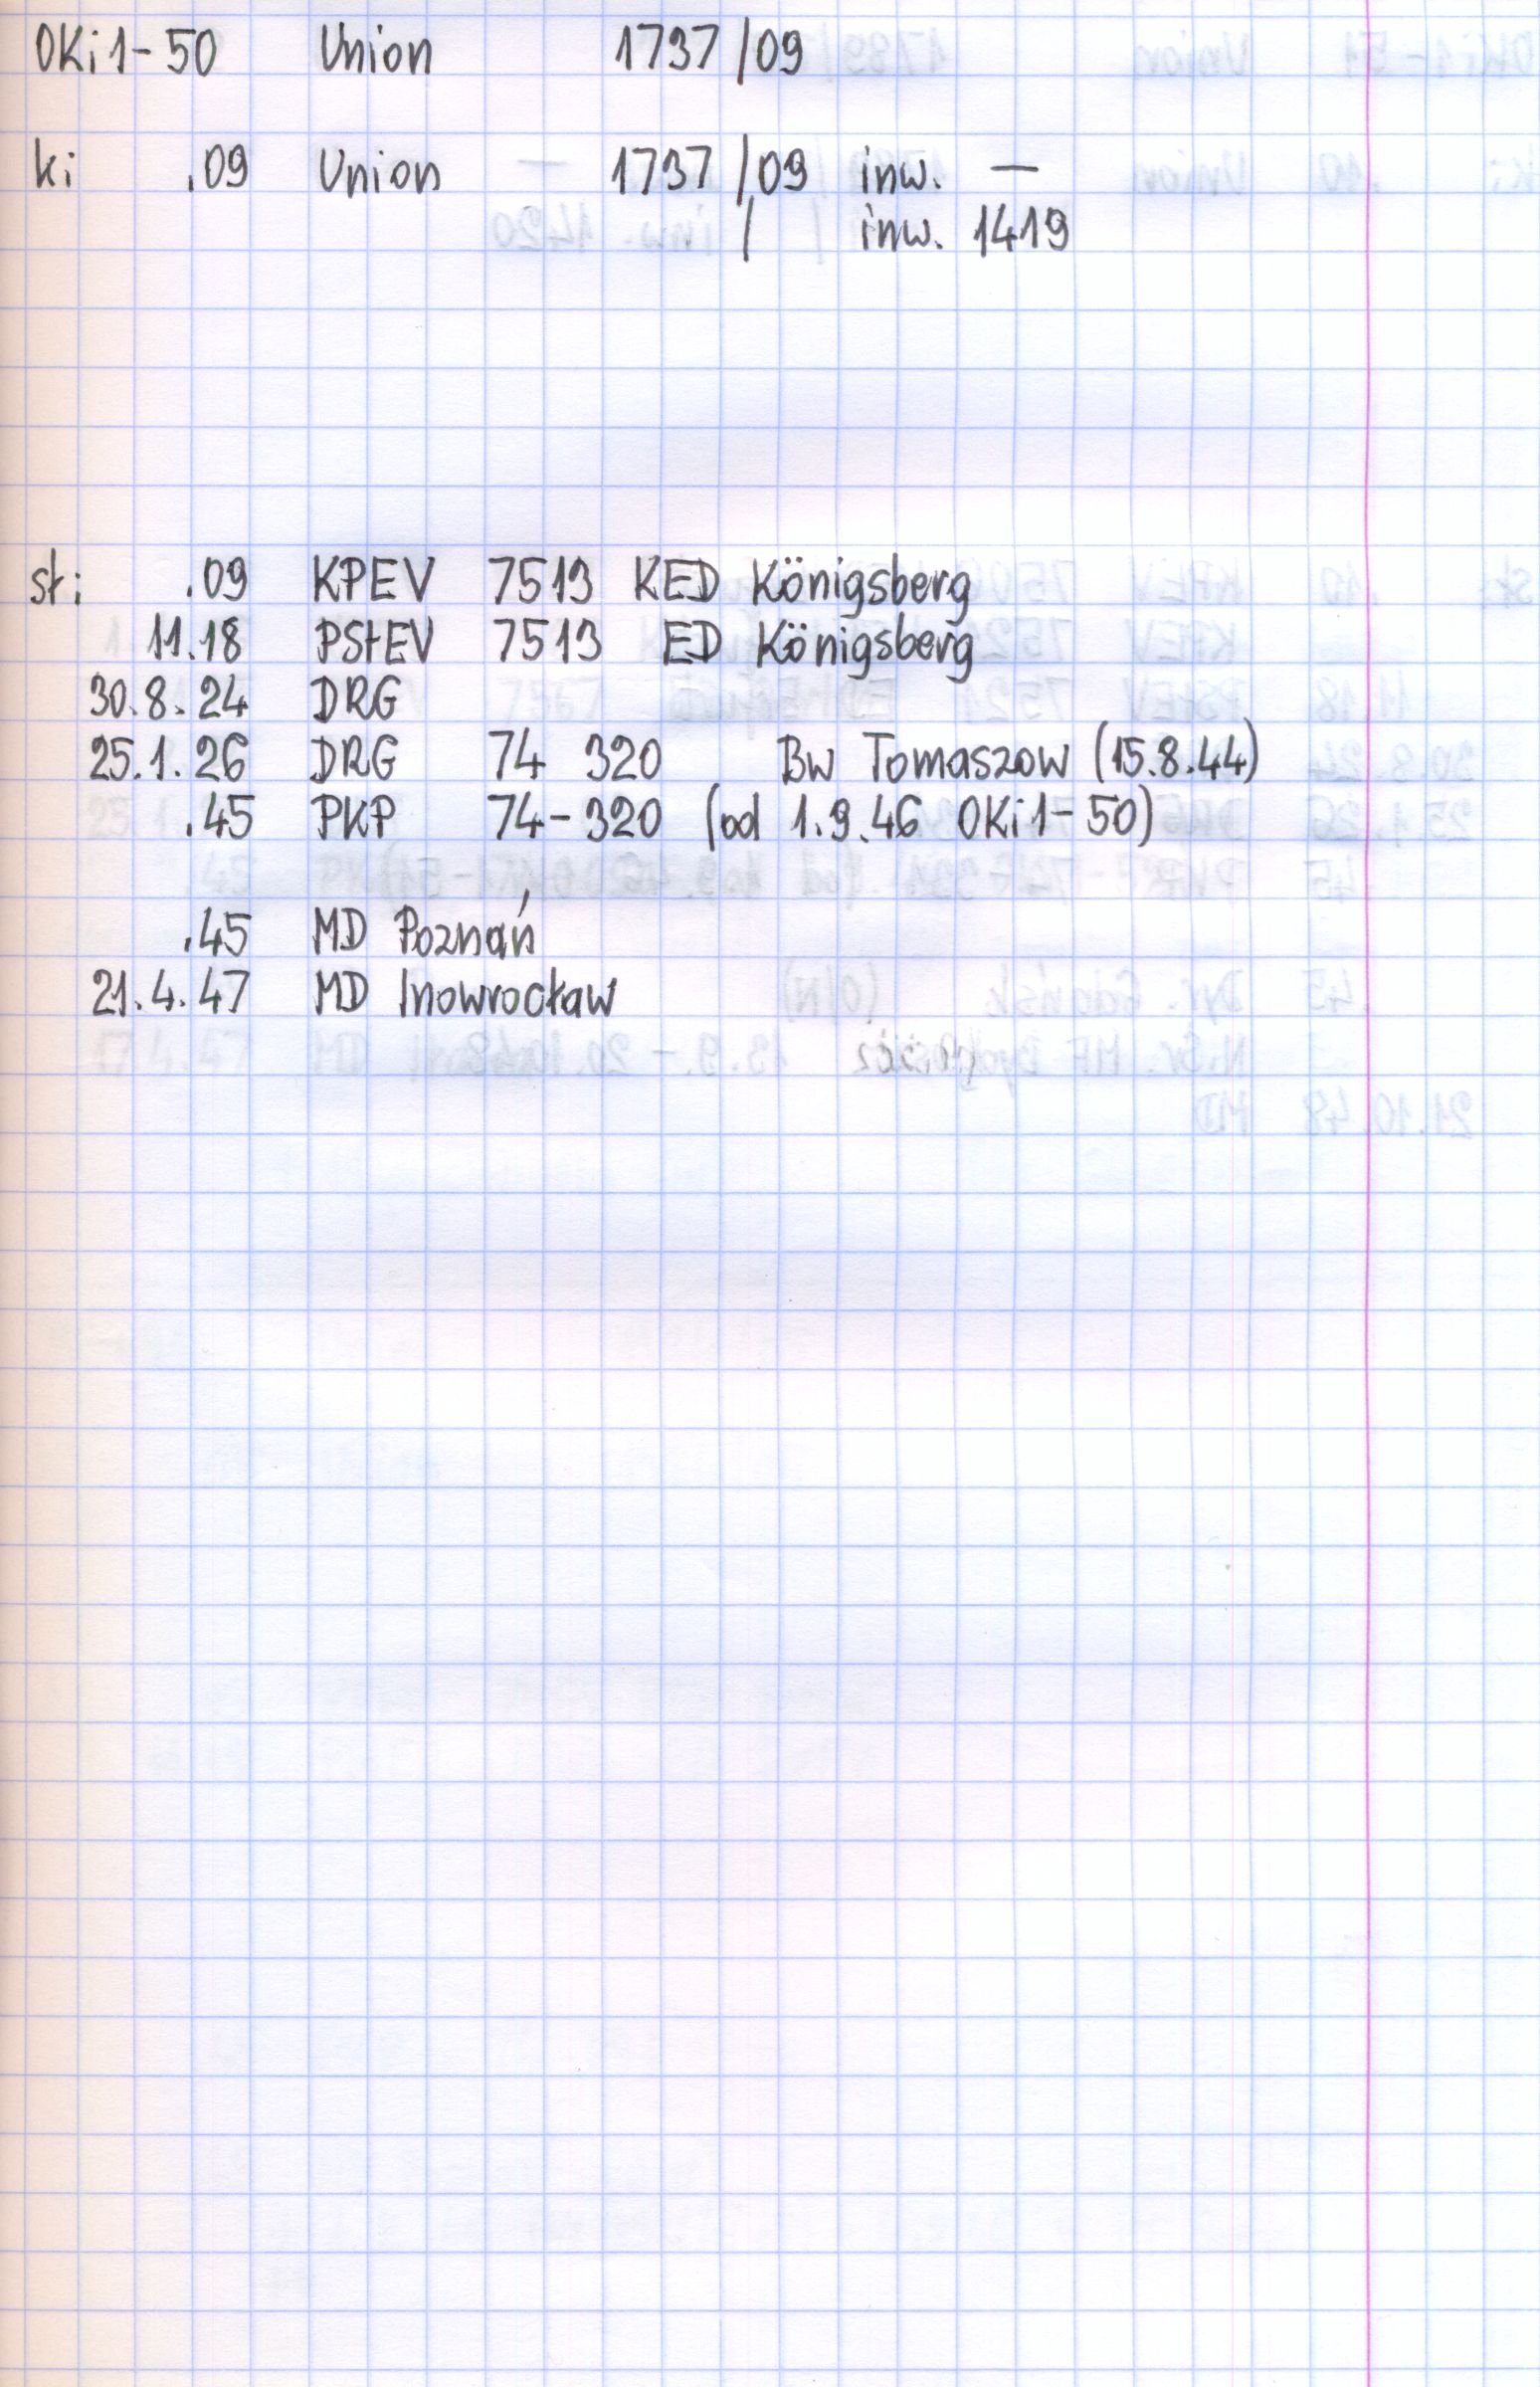 OKi1-50 Union 1737/09
ki .09 Union 1737/09 inw. —
/ inw. 1419
st: .09 KPEV 7513 KED Königsberg
11.18 PStEV 7513 ED Königsberg
30.8.24 DRG
25.1.26 DRG 74 320 Bw Tomaszow (15.8.44)
.45 PKP 74-320 (od 1.9.46 OKi1-50)
.45 MD Poznań
21.4.47 MD Inowrocław